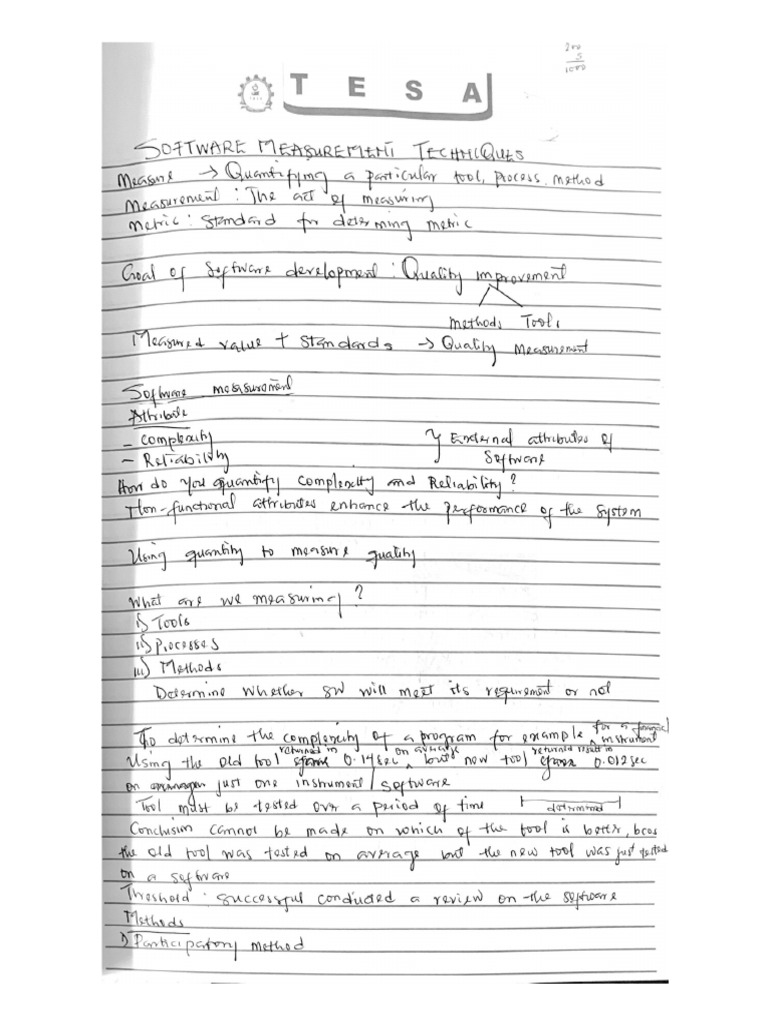 200
5
1000
TESA
SOFTWARE MEASUREMENT TECHNIQUES
Measure → Quantifying a particular tool, process, method
Measurement : The act of measuring
Metric : Standard for determining metric
Goal of software development : Quality improvement
Methods Tools
Measured value + Standards → Quality Measurement
Software measurement
Attribute
- Complexity
- Reliability
} External attributes of
Software
How do you quantify complexity and Reliability?
Non-functional attributes enhance the performance of the system
Using quantity to measure quality
What are we measuring?
i) Tools
ii) Processes
iii) Methods
Determine whether SW will meet its requirement or not
To determine the complexity of a program for example for a instrument
Using the old tool returned in 0.14sec on average, but new tool returned result in 0.012sec
on just one instrument/software
Tool must be tested over a period of time determined
Conclusion cannot be made on which of the tool is better, bcos
the old tool was tested on average but the new tool was just tested
on a software
Threshold : successful conducted a review on the software
Methods
1) Participatory method